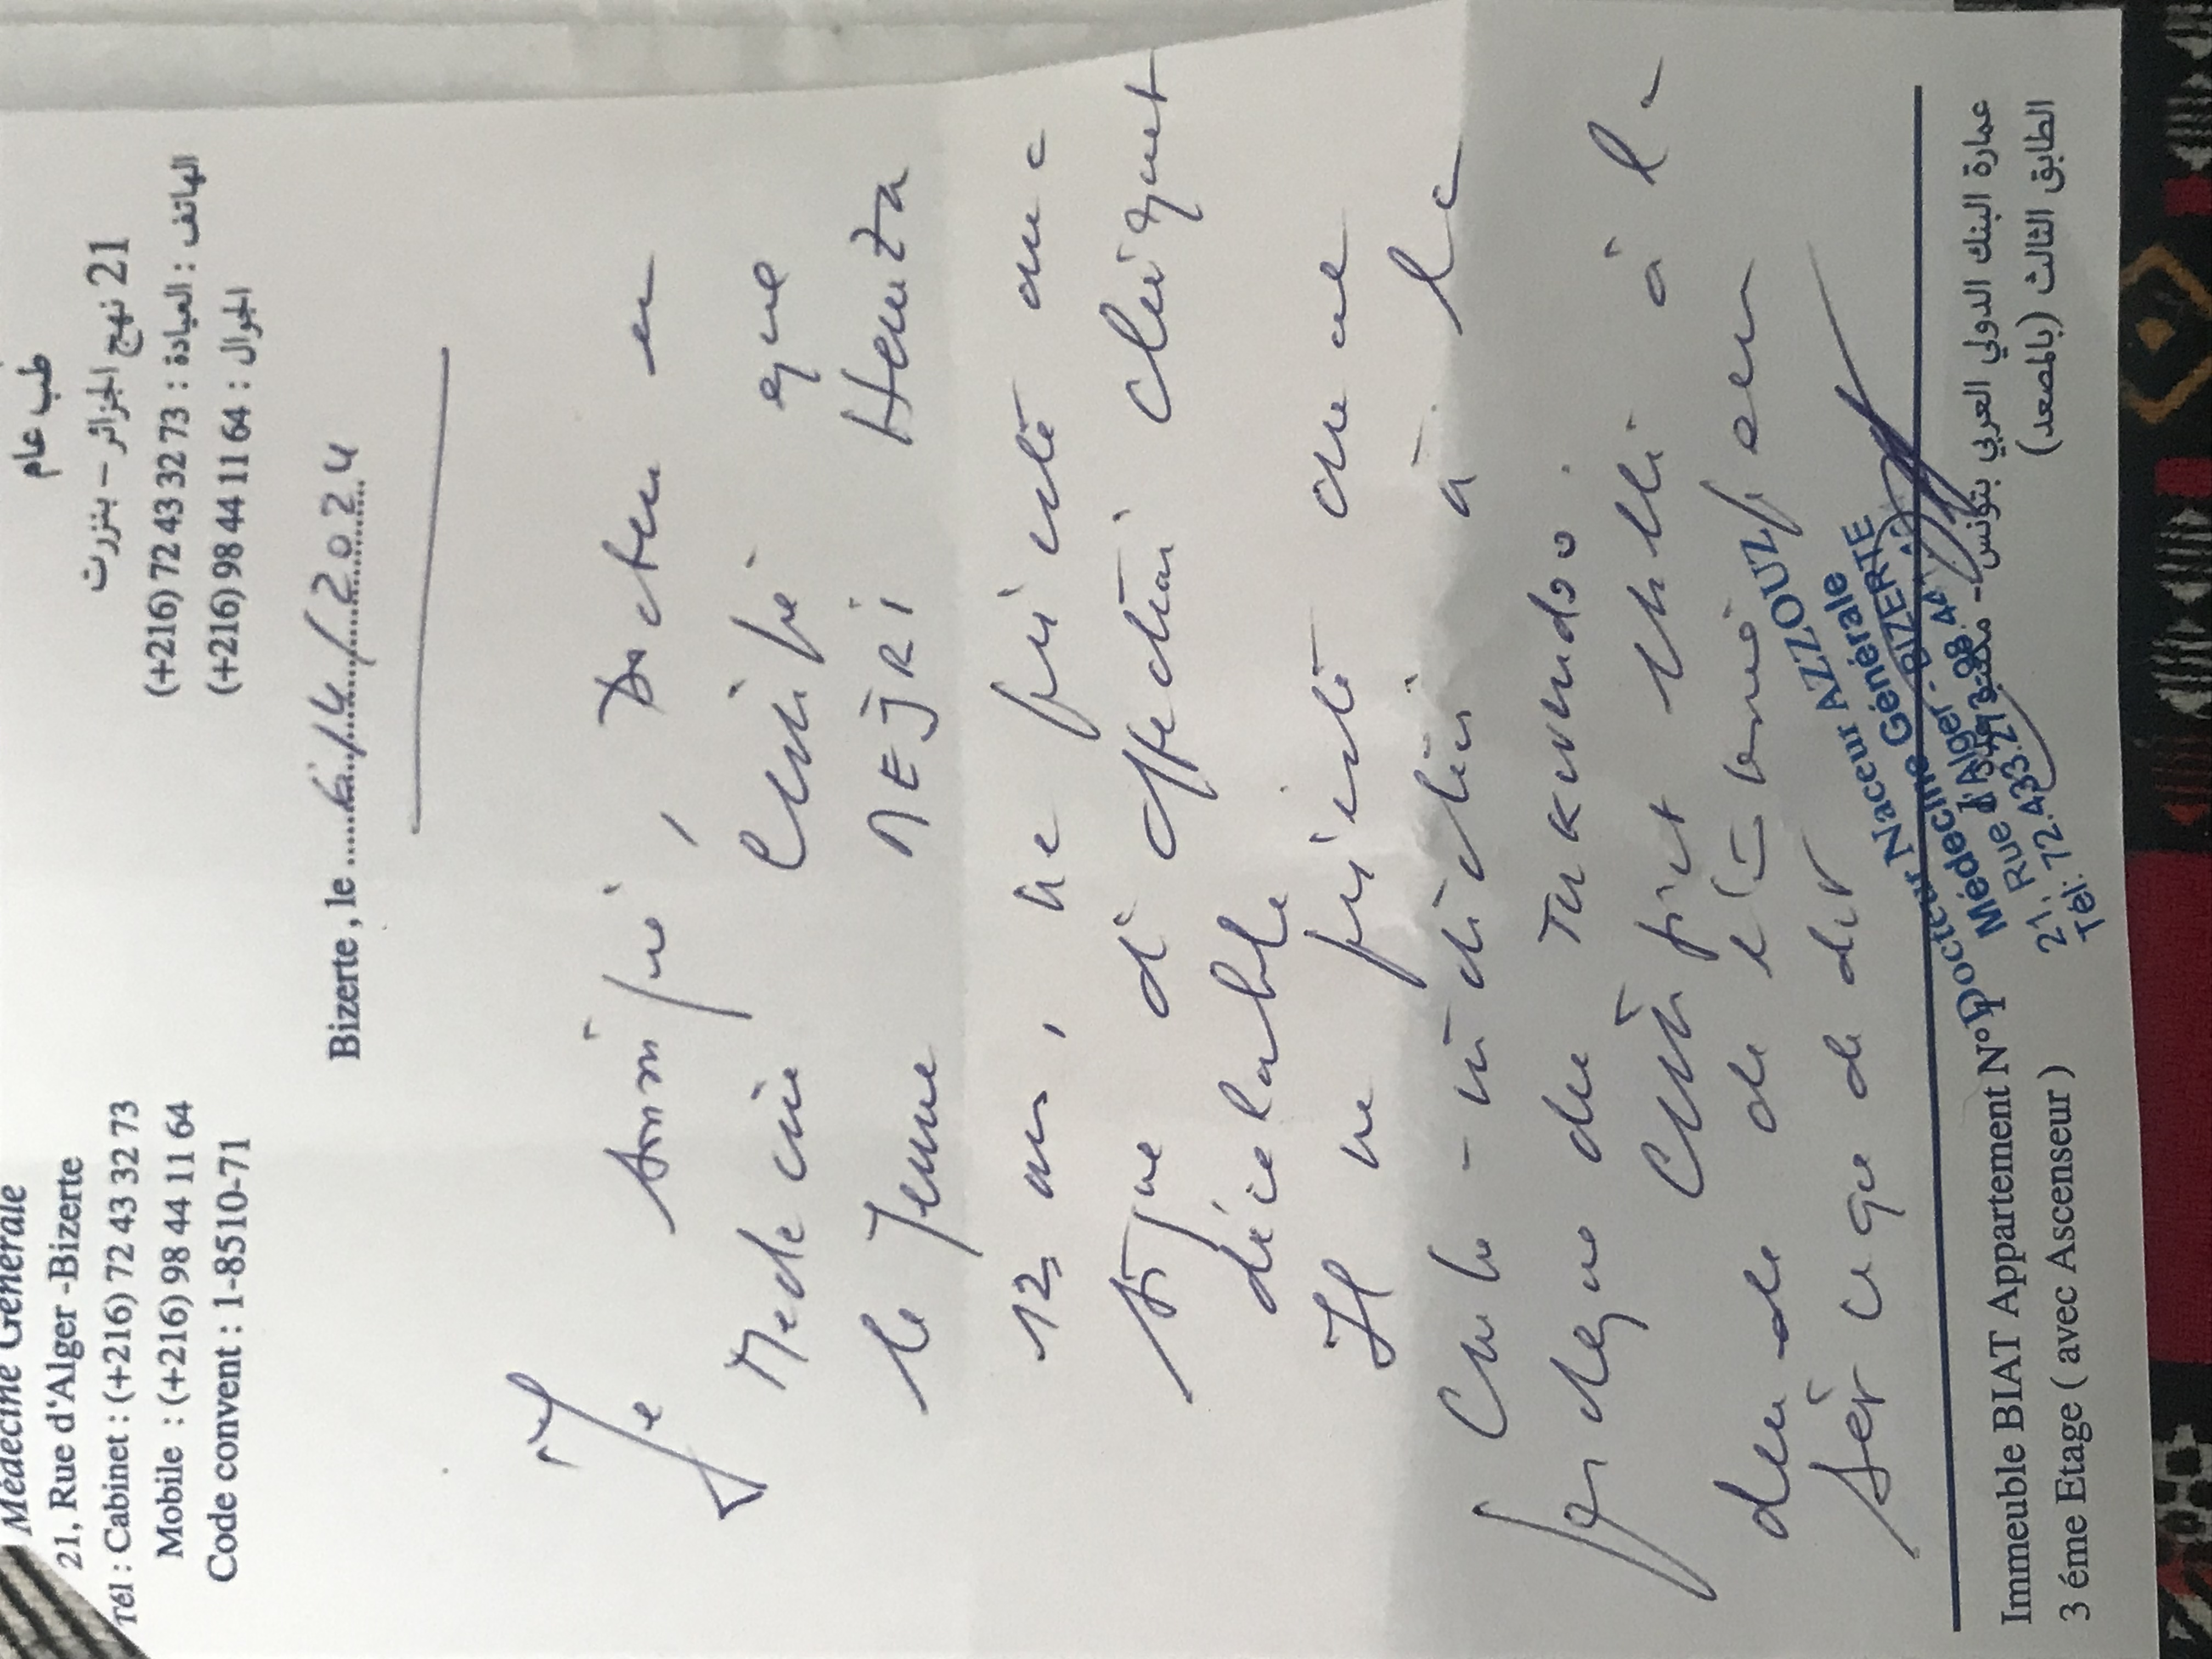 Médecine Générale
21, Rue d'Alger -Bizerte
Tél : Cabinet : (+216) 72 43 32 73
Mobile : (+216) 98 44 11 64
Code convent : 1-8510-71
طب عام
21 نهج الجزائر - بنزرت
الهاتف : العيادة : 73 32 43 72 (216+)
الجوال : 64 11 44 98 (216+)
Bizerte , le 6/4/2024
Je soussigné, Docteur en
Médecine certifie que
le jeune NEJRI Hamza
12 ans, ne présente aucun
signe d'affection cliniquement
décelable
Il ne présente aucune
contre-indication à la
pratique du Taekwondo.
Certificat établi à la
demande de l'intéressé pour
servir ce que de droit
Docteur Naceur AZZOUZ
Médecine Générale
21, Rue d'Alger - BIZERTE
Tél: 72.433.273 - 98.44
Immeuble BIAT Appartement N°
3 éme Etage ( avec Ascenseur )
عمارة البنك الدولي العربي بتونس -
الطابق الثالث (بالمصعد)